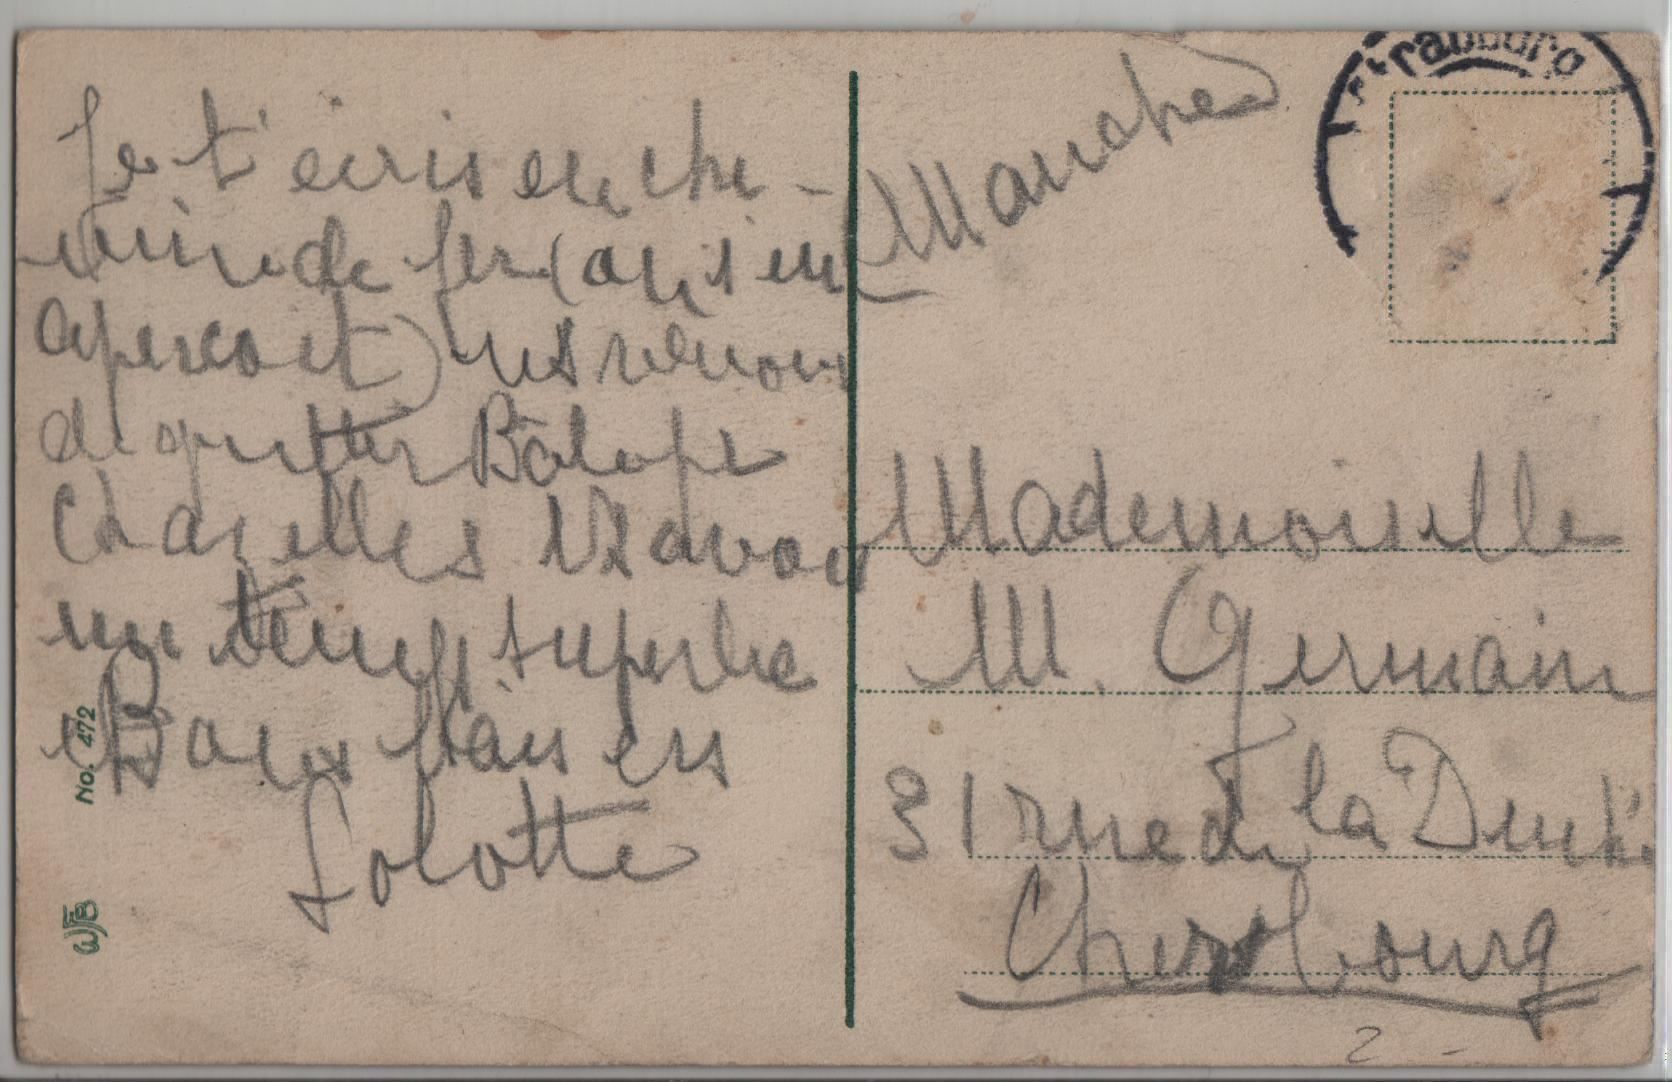 Je t'écris en che-
min de fer (on s'en
aperçoit) ns venons
de quitter Bâle
Charelles ns avons
un temps superbe
Bons baisers
Lolotte
No. 472
WFB
Strassburg
Manche
Mademoiselle
M. Germain
31 rue de la
Cherbourg
2 -